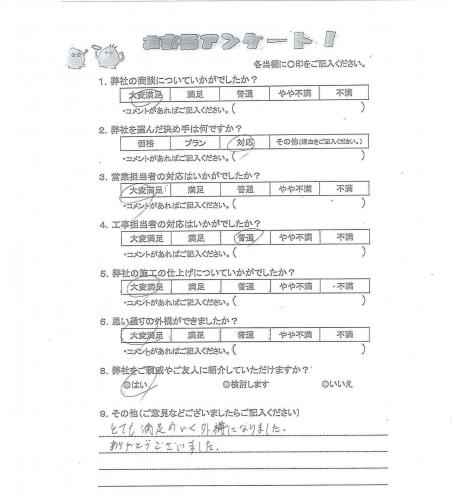 お客様アンケート！
各当欄に○印をご記入ください。
1. 弊社の商談についていかがでしたか？
大変満足 満足 普通 やや不満 不満
・コメントがあればご記入ください。( )
2. 弊社を選んだ決め手は何ですか？
価格 プラン 対応 その他(理由をご記入ください。)
・コメントがあればご記入ください。( )
3. 営業担当者の対応はいかがでしたか？
大変満足 満足 普通 やや不満 不満
・コメントがあればご記入ください。( )
4. 工事担当者の対応はいかがでしたか？
大変満足 満足 普通 やや不満 不満
・コメントがあればご記入ください。( )
5. 弊社の施工の仕上げについていかがでしたか？
大変満足 満足 普通 やや不満 不満
・コメントがあればご記入ください。( )
6. 思い通りの外構ができましたか？
大変満足 満足 普通 やや不満 不満
・コメントがあればご記入ください。( )
8. 弊社をご親戚やご友人に紹介していただけますか？
◎はい ◎検討します ◎いいえ
9. その他(ご意見などございましたらご記入ください)
とても満足のいく外構になりました。
ありがとうございました。